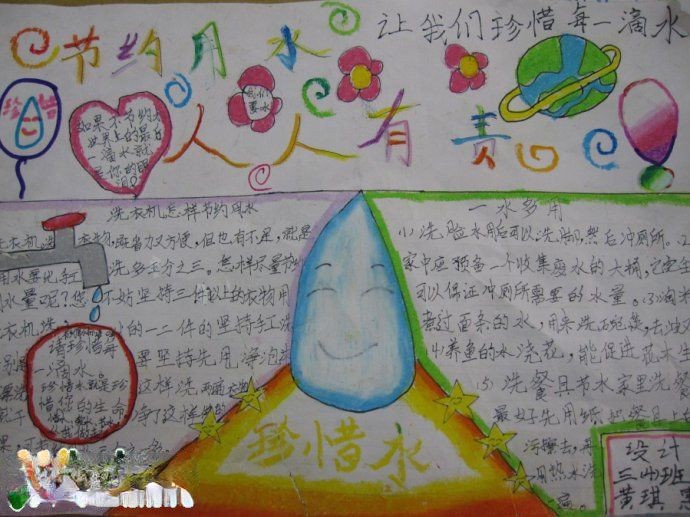 节约用水
让我们珍惜每一滴水
珍惜
我们
要水
人人有责
如果不节约水
世界上的最后
一滴水就
是你的眼
泪
洗衣机怎样节约用水
洗衣机洗衣物,既省力又方便,但也有不足,就是
用水要比手工洗多五分之三。怎样尽量
水量呢?您不妨坚持三件以上的衣物用
衣机洗,一二件的坚持手工洗
要坚持先甩净泡沫
这样洗两遍衣物
请珍惜每
一滴水。
珍惜水就是珍
惜你的生命
珍惜水
一水多用
(1)洗脸水用后可以洗脚,然后冲厕所。(2)
家中应预备一个收集废水的大桶,它完全
可以保证冲厕所需要的水量。(3)淘米水
煮过面条的水,用来洗碗筷,去油又
(4)养鱼的水浇花,能促进花木生
(5)洗餐具节水家里洗餐
最好先用纸把餐具上的
污擦去,再
用热水洗
遍。
设计
三(4)班
黄琪